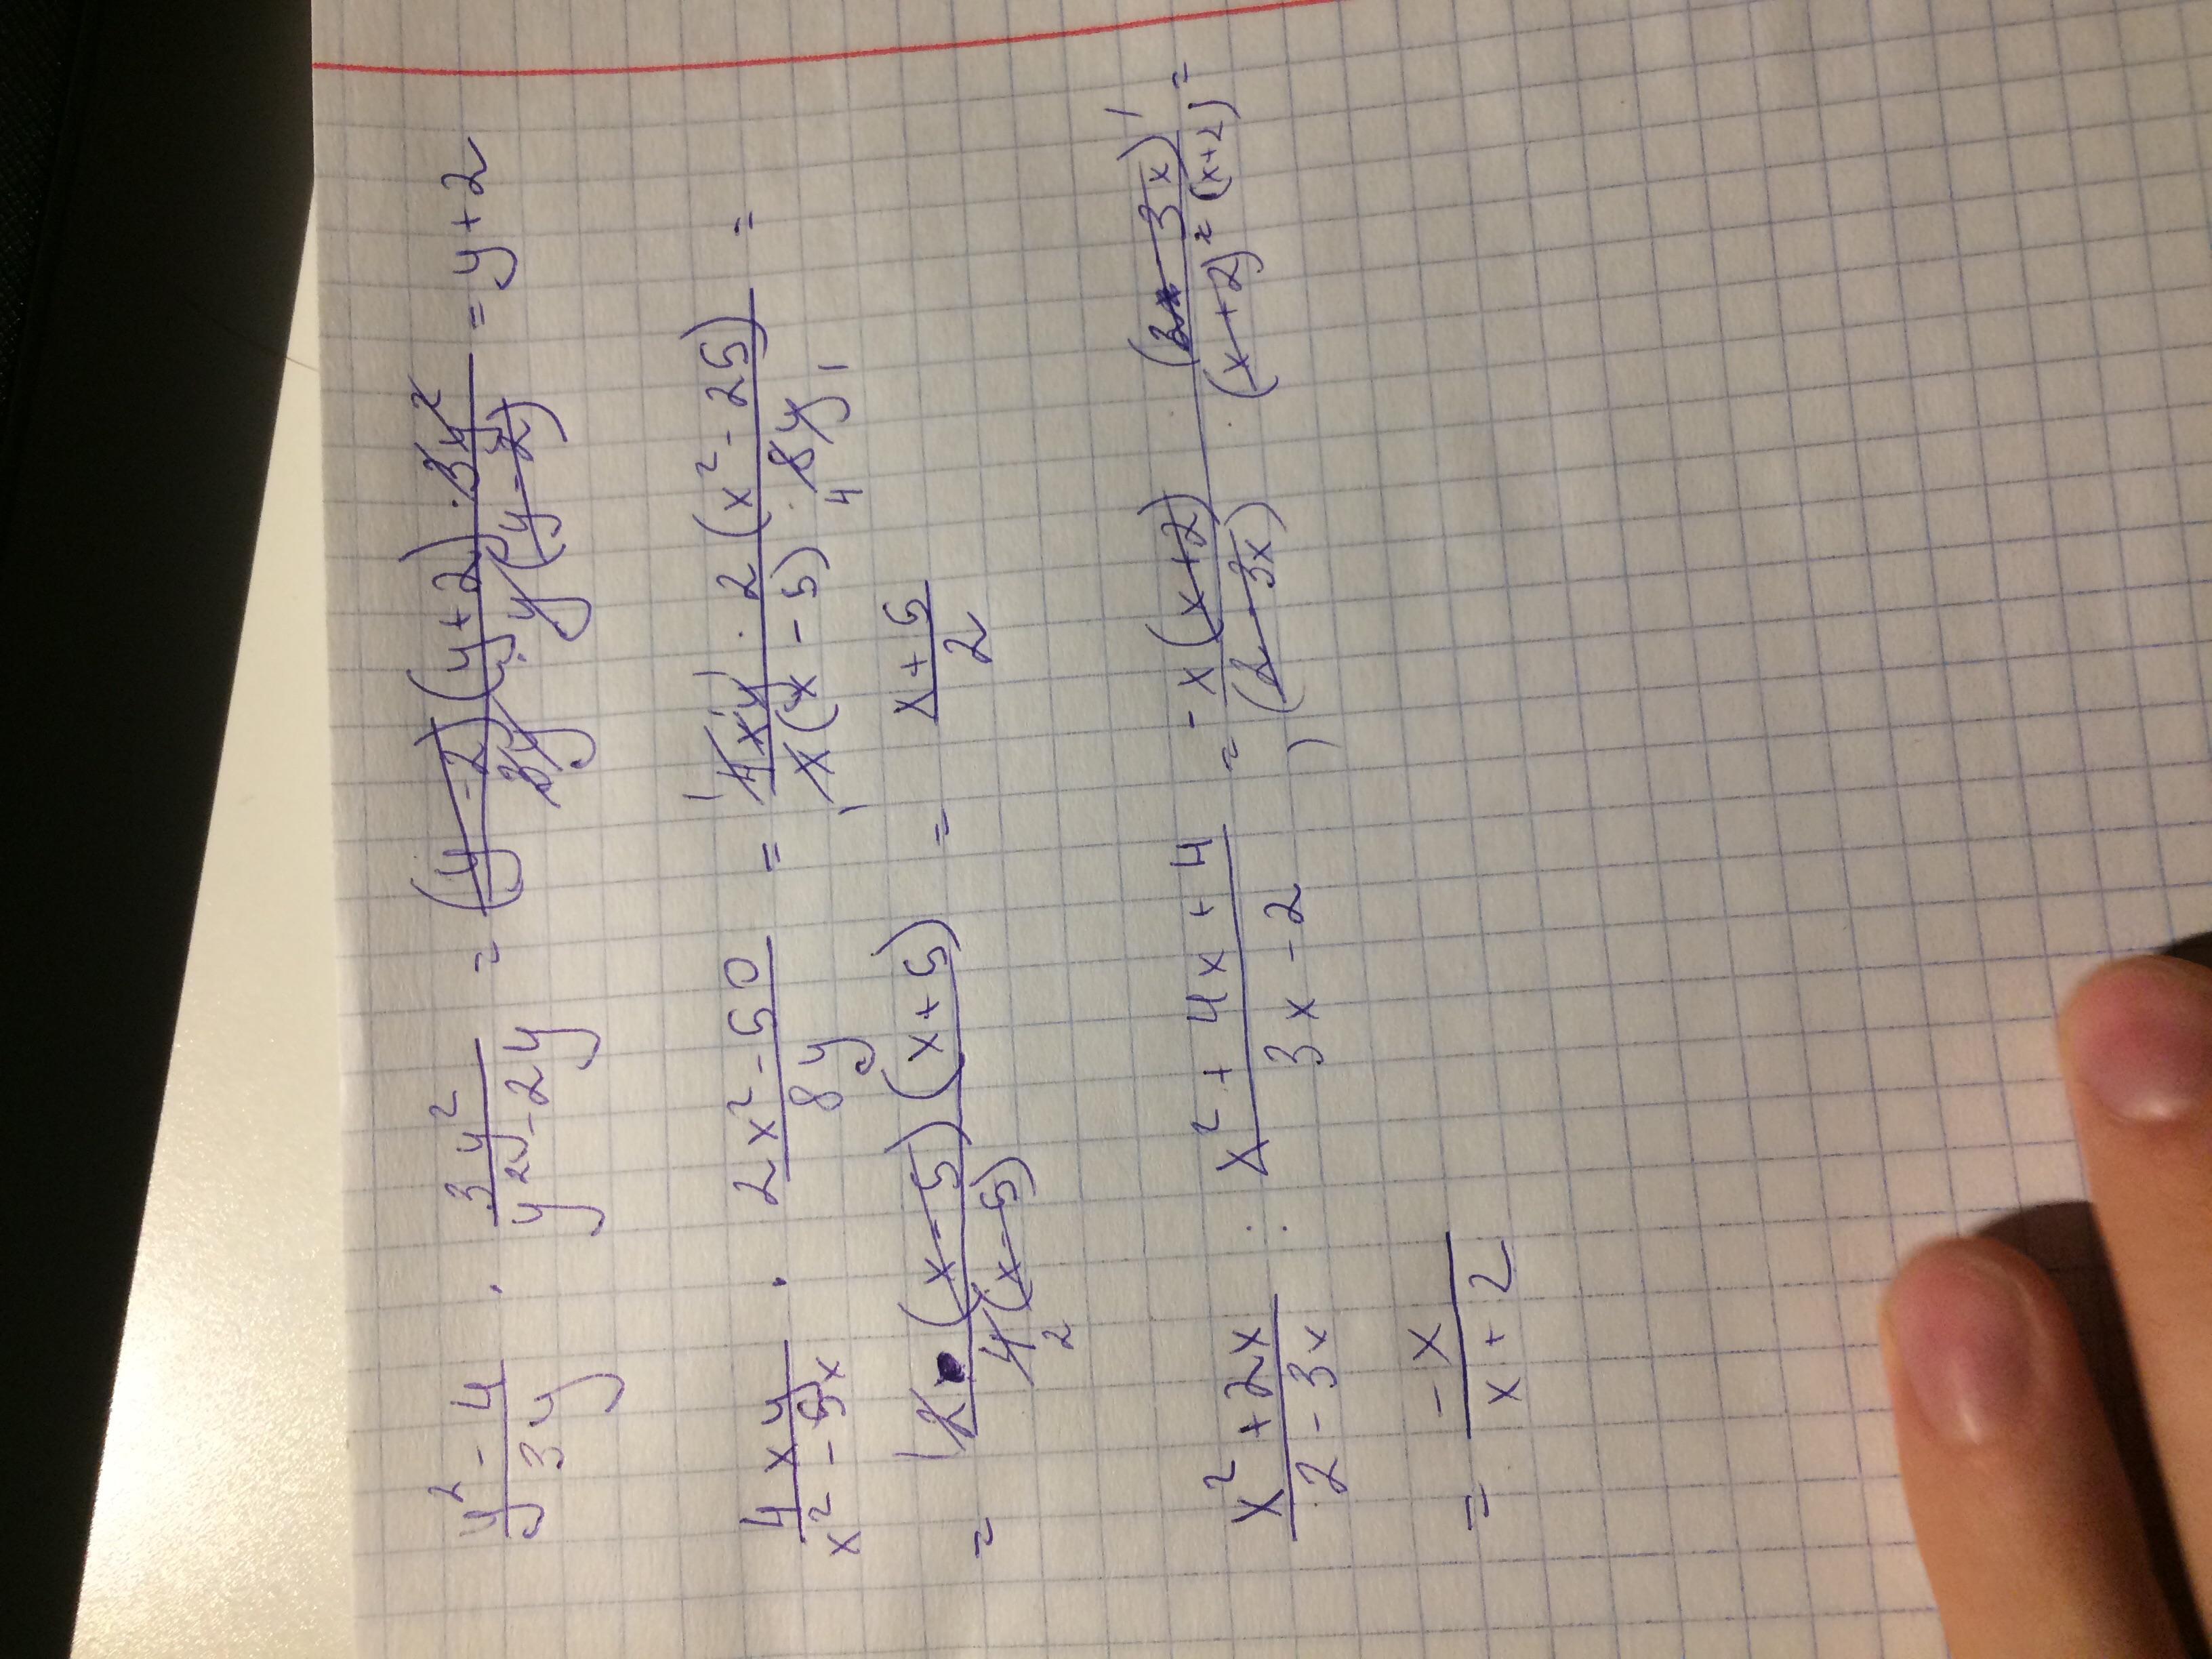 (y² - 4)/(3y) · (3y²)/(y² - 2y) = ((y - 2)(y + 2) · 3y²)/(3y · y(y - 2)) = y + 2
(4xy)/(x² - 5x) · (2x² - 50)/(8y) = (4xy · 2(x² - 25))/(x(x - 5) · 8y) =
= ((x - 5)(x + 5))/(4(x - 5)) = (x + 5)/2
(x² + 2x)/(2 - 3x) : (x² + 4x + 4)/(3x - 2) = -(x(x + 2))/(2 - 3x) · (2 - 3x)/((x + 2)² (x + 2))
= (-x)/(x + 2)